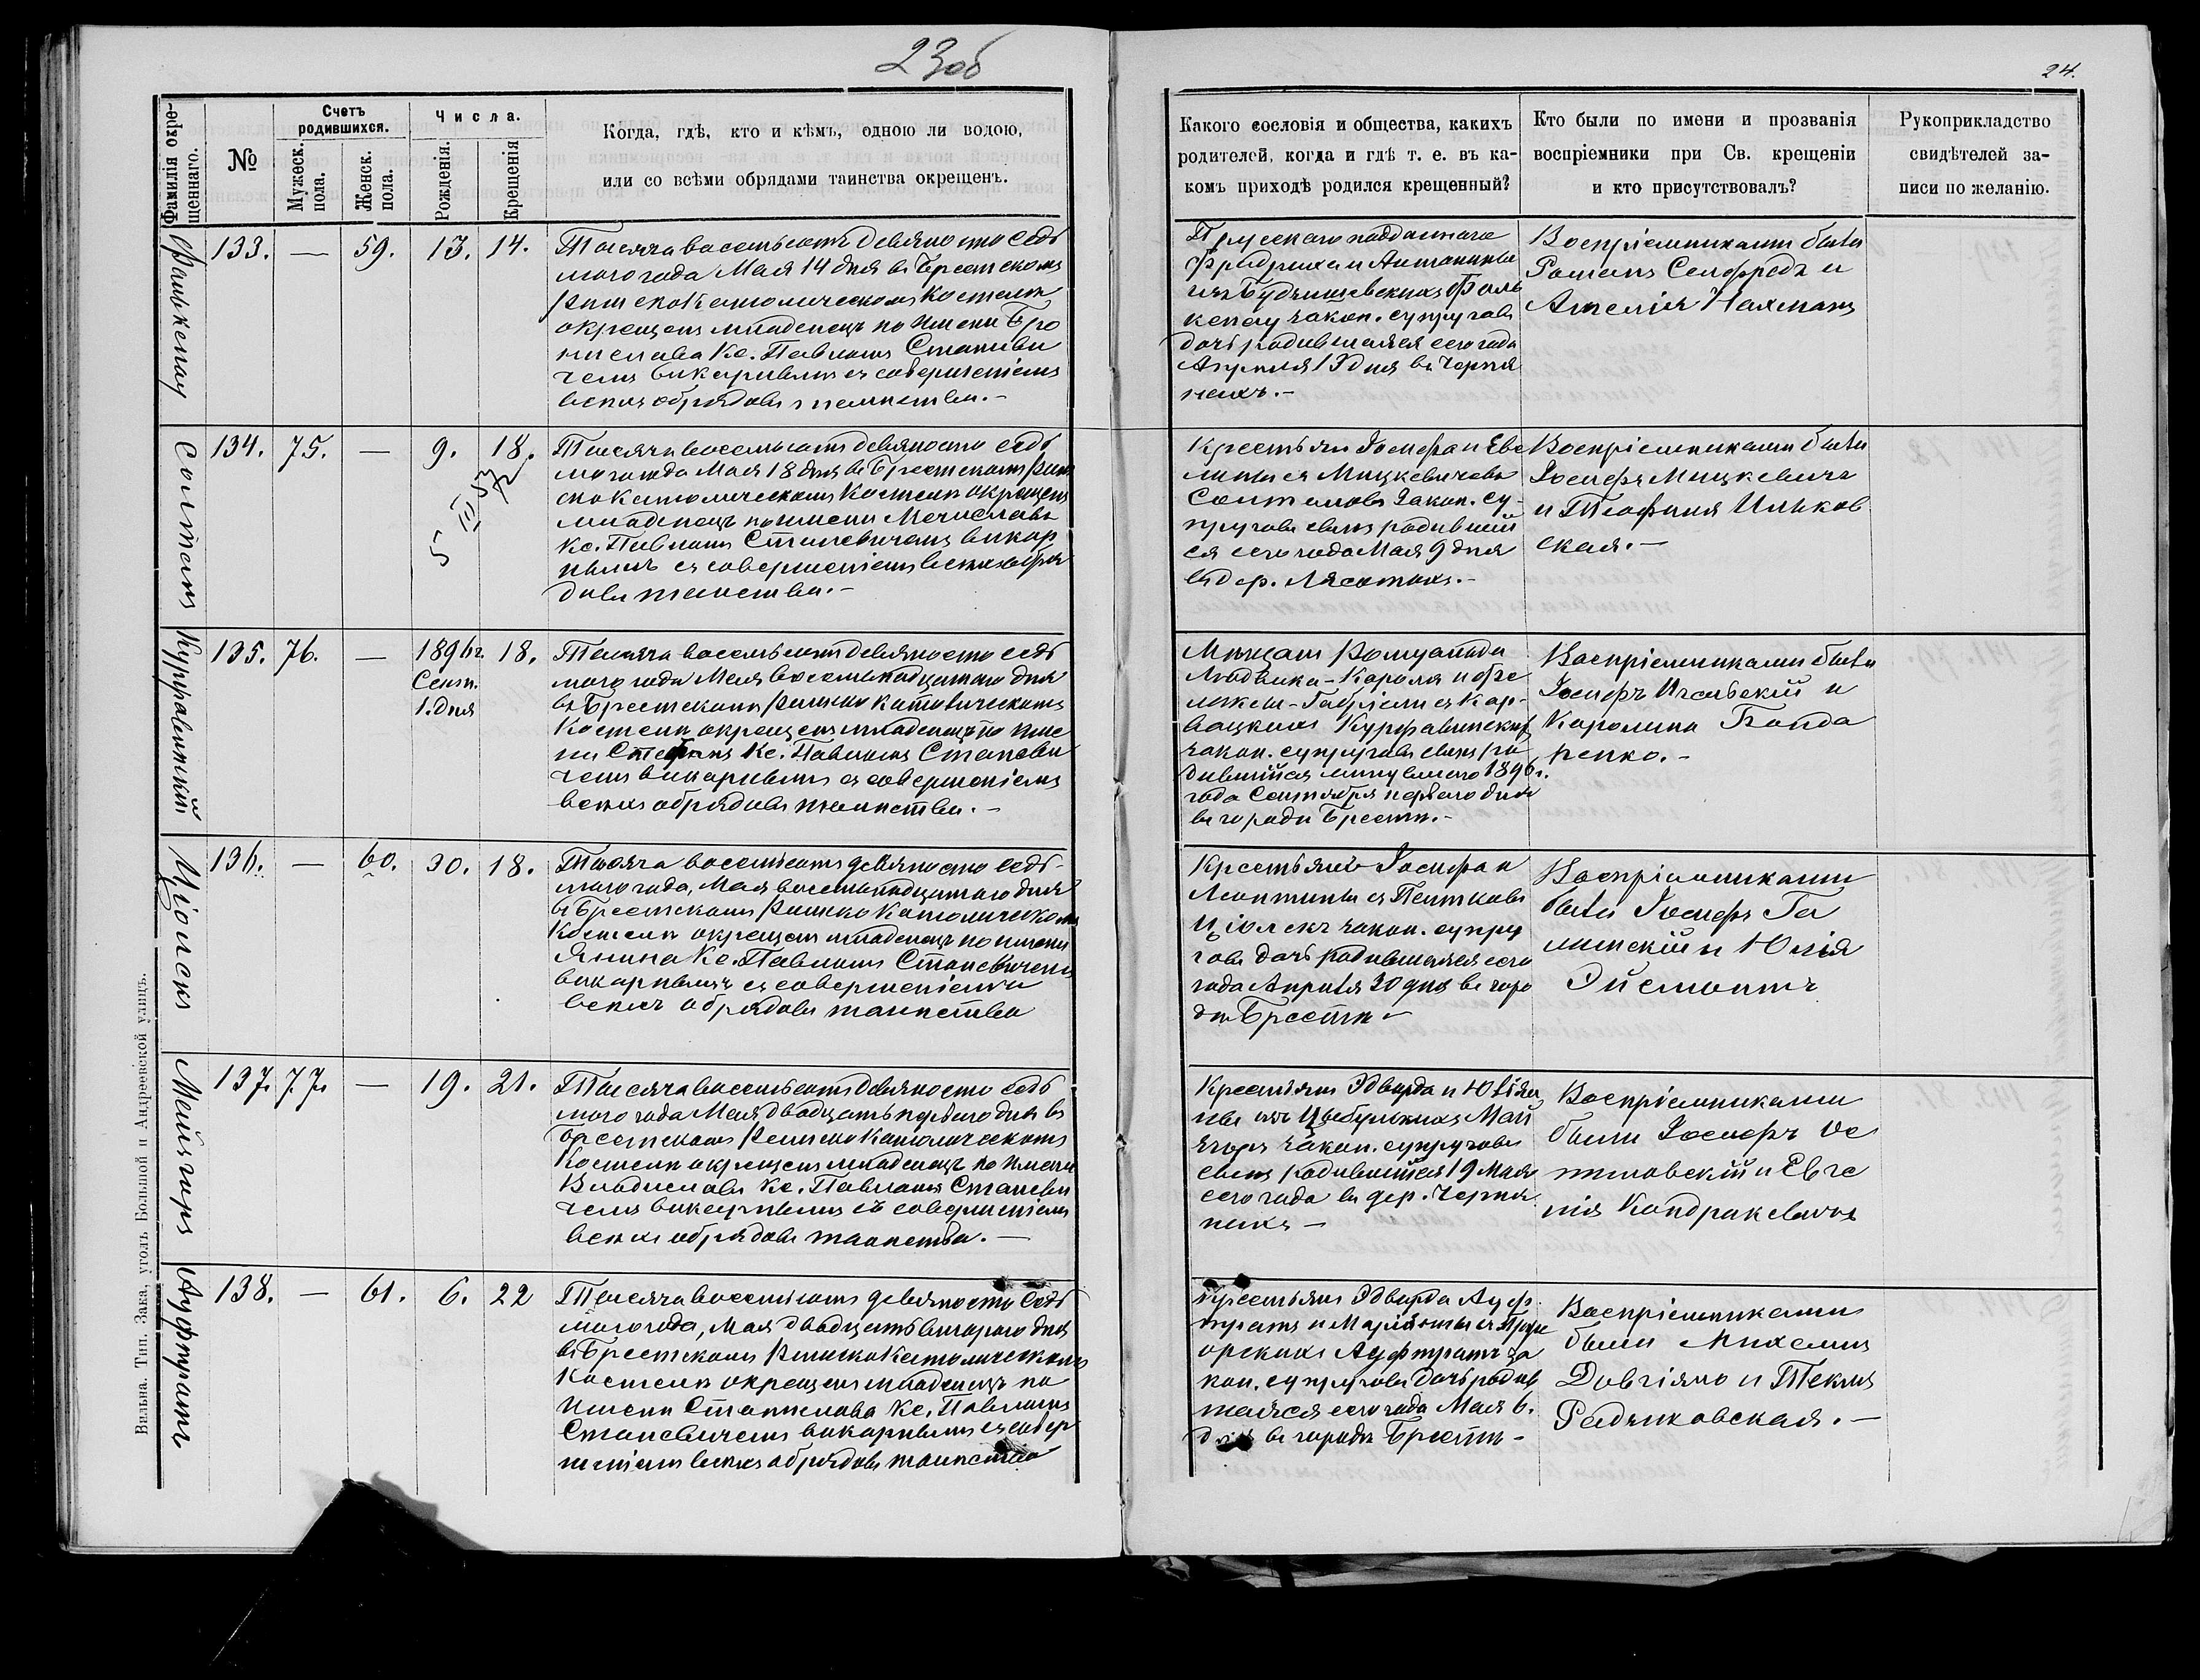 23об
24.
Фамилія окре-
щеннаго.
№
Счетъ
родившихся.
Мужеск.
пола.
Женск.
пола.
Числа.
Рожденія.
Крещенія
Когда, гдѣ, кто и кѣмъ, одною ли водою,
или со всѣми обрядами таинства окрещенъ.
Какого сословія и общества, какихъ
родителей, когда и гдѣ т. е. въ ка-
комъ приходѣ родился крещенный?
Кто были по имени и прозванія
воспріемники при Св. крещеніи
и кто присутствовалъ?
Рукоприкладство
свидѣтелей за-
писи по желанію.
Фалькенау
133. — 59. 13. 14.
Тысяча восемьсотъ девяносто седь
мого года Мая 14 дня въ Брестскомъ
Римско Католическомъ Костелѣ
окрещенъ младенецъ по имени Бро
нислава Кс. Павломъ Станеви
чемъ викарнымъ съ совершеніемъ
всѣхъ обрядовъ таинства.-
Прусскаго подданнаго
Фридриха и Антонины
изъ Фаль
кенау закон. супруговъ
дочь родившаяся сего года
13 дня въ Черня
нахъ.-
Воспріемниками были
Романъ и
Амелія Нахманъ
Солтанъ
134. 75. — 9. 18.
5 III 57
Тысяча восемьсотъ девяносто седь
мого года Мая 18 дня въ Брестскомъ Рим
ско Католическомъ Костелѣ окрещенъ
младенецъ по имени Мечиславъ
Кс. Павломъ Станевичемъ викар
нымъ съ совершеніемъ всѣхъ обря
довъ таинства.-
Крестьянъ Іосифа и Еве
лины съ Мицкевичовъ
Солтановъ закон. су-
пруговъ сынъ родивший
ся сего года Мая 9 дня
въ дер. Лясотахъ.-
Воспріемниками были
Іосифъ Мицкевичъ
и Теофиля Ильков
ская.-
Курравинскій
135. 76. — 1896 г. 18.
Сент.
1. дня
Тысяча восемьсотъ девяносто седь
мого года Мая восемнадцатаго дня
въ Брестскомъ Римско Католическомъ
Костелѣ окрещенъ младенецъ по име
ни Стефанъ Кс. Павломъ Станеви
чемъ викарнымъ съ совершеніемъ
всѣхъ обрядовъ таинства.-
Мѣщанъ Ромуальда
Людвика-Кароля и
Габріели съ Кор-
вацкихъ
закон. супруговъ сынъ ро
дившійся минувшаго 1896 г.
года Сентября перваго дня
въ городѣ Брестѣ.-
Воспріемниками были
Іосифъ и
Каролина Бонда
ренко.-
Ціолекъ
136. — 60. 30. 18.
Тысяча восемьсотъ девяносто седь-
мого года, Мая восемнадцатаго дня
въ Брестскомъ Римско Католическомъ
Костелѣ окрещенъ младенецъ по имени
Янина Кс. Павломъ Станевичемъ
викарнымъ съ совершеніемъ
всѣхъ обрядовъ таинства
Крестьянъ Іосифа и
Леонтины съ Пентковъ
Ціолекъ закон. супру
говъ дочь родившаяся сего
года Апрѣля 30 дня въ горо
дѣ Брестѣ-
Воспріемниками
были Іосифъ Га
линскій и Юлія
Эйсмонтъ
Мейзгоръ
137. 77. — 19. 21.
Тысяча восемьсотъ девяносто седь
мого года Мая двадцать перваго дня въ
Брестскомъ Римско Католическомъ
Костелѣ окрещенъ младенецъ по имени
Владиславъ Кс. Павломъ Станеви
чемъ викарнымъ съ совершеніемъ
всѣхъ обрядовъ таинства.-
Крестьянъ Эдварда и Юлія
ны изъ Цыбульскихъ Май
згоръ закон. супруговъ
сынъ родившійся 19 Мая
сего года въ дер. Черня
нахъ-
Воспріемниками
были Іосифъ Ос
тиловскій и Евге
нія
Ауфтратъ
138. — 61. 6. 22
Тысяча восемьсотъ девяносто седь
мого года, Мая двадцать второго дня
въ Брестскомъ Римско Католическомъ
Костелѣ окрещенъ младенецъ по
имени Станислава Кс. Павломъ
Станевичемъ викарнымъ съ совер
шеніемъ всѣхъ обрядовъ таинства
Крестьянъ Эдварда Ауф
тратъ и Маріанны съ
Ауфтратъ за
кон. супруговъ дочь родив
шаяся сего года Мая 6.
дня въ городѣ Брестѣ-
Воспріемниками
были Михаилъ
Довгялло и Текля
Радиковская.-
Вильна. Тип. Зака, уголъ Большой и Андреевской улицъ.